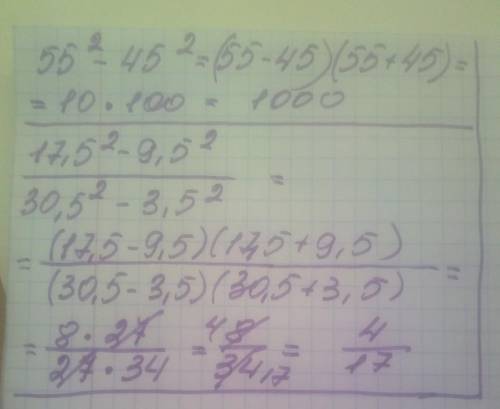 55² - 45² = (55-45)(55+45) =
= 10 · 100 = 1000
17,5² - 9,5²
30,5² - 3,5² =
= (17,5-9,5)(17,5+9,5)
(30,5-3,5)(30,5+3,5) =
= 8 · 27 / 27 · 34 = 4 8 / 34 17 = 4 / 17